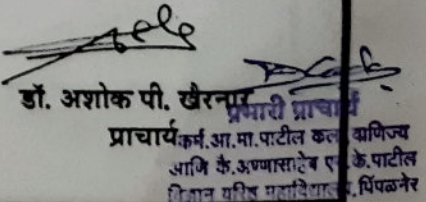 डॉ. अशोक पी. खैरनार
प्रभारी प्राचार्य
प्राचार्य
कर्म.आ.मा.पाटील कला वाणिज्य
आणि कै.अण्णासाहेब एन.के.पाटील
विज्ञान वरिष्ठ महाविद्यालय, पिंपळनेर